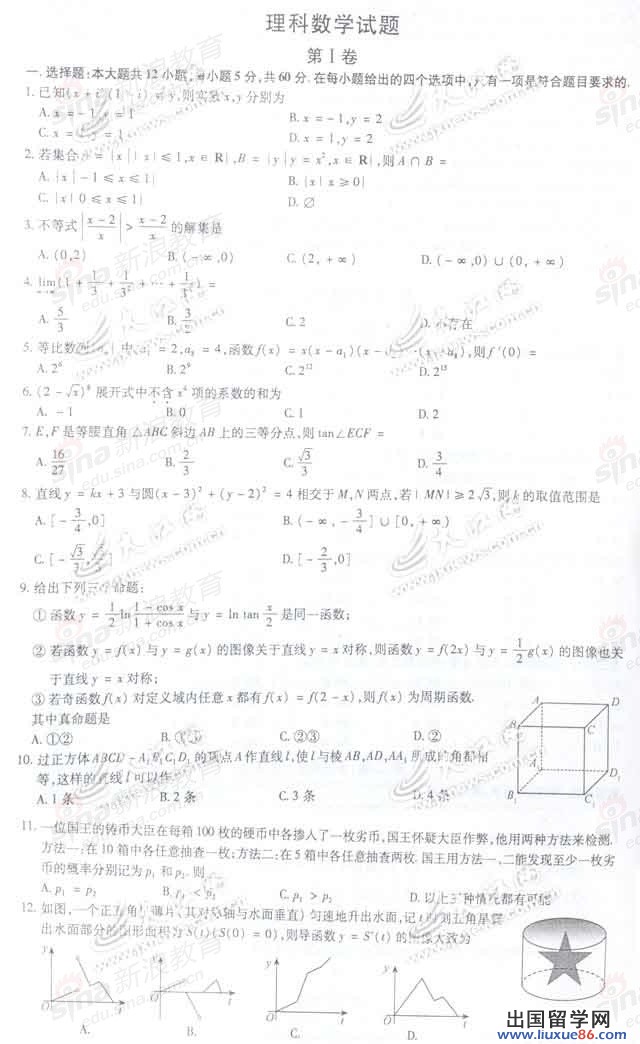 理科数学试题
第Ⅰ卷
一. 选择题:本大题共12小题,每小题5分,共60分.在每小题给出的四个选项中,只有一项是符合题目要求的.
1. 已知(x+i)(1-i)=y,则实数x,y分别为
A. x=-1,y=1 B. x=-1,y=2
C. x=1,y=1 D. x=1,y=2
2. 若集合A={x||x|≤1,x∈R},B={y|y=x²,x∈R},则A∩B=
A. {x|-1≤x≤1} B. {x|x≥0}
C. {x|0≤x≤1} D. ∅
3. 不等式|(x-2)/x|>(x-2)/x的解集是
A. (0,2) B. (-∞,0) C. (2,+∞) D. (-∞,0)∪(0,+∞)
4. lim(1+1/3+1/3²+…+1/3ⁿ)=
A. 5/3 B. 3/2 C. 2 D. 不存在
5. 等比数列{aₙ}中,a₁=2,a₈=4,函数f(x)=x(x-a₁)(x-a₂)…(x-a₈),则f′(0)=
A. 2⁶ B. 2⁹ C. 2¹² D. 2¹⁵
6. (2-√x)⁸展开式中不含x⁴项的系数的和为
A. -1 B. 0 C. 1 D. 2
7. E,F是等腰直角△ABC斜边AB上的三等分点,则tan∠ECF=
A. 16/27 B. 2/3 C. √3/3 D. 3/4
8. 直线y=kx+3与圆(x-3)²+(y-2)²=4相交于M,N两点,若|MN|≥2√3,则k的取值范围是
A. [-3/4,0] B. (-∞,-3/4]∪[0,+∞)
C. [-√3/3,√3/3] D. [-2/3,0]
9. 给出下列三个命题:
① 函数y=1/2 ln (1-cos x)/(1+cos x)与y=ln tan x/2是同一函数;
② 若函数y=f(x)与y=g(x)的图像关于直线y=x对称,则函数y=f(2x)与y=1/2 g(x)的图像也关
于直线y=x对称;
③ 若奇函数f(x)对定义域内任意x都有f(x)=f(2-x),则f(x)为周期函数.
其中真命题是
A. ①② B. ①③ C. ②③ D. ②
10. 过正方体ABCD-A₁B₁C₁D₁的顶点A作直线l,使l与棱AB,AD,AA₁所成的角都相
等,这样的直线l可以作
A. 1条 B. 2条 C. 3条 D. 4条
A D B C A₁ D₁ B₁ C₁
11. 一位国王的铸币大臣在每箱100枚的硬币中各掺入了一枚劣币,国王怀疑大臣作弊,他用两种方法来检测.
方法一:在10箱中各任意抽查一枚;方法二:在5箱中各任意抽查两枚.国王用方法一、二能发现至少一枚劣
币的概率分别记为p₁和p₂.则
A. p₁=p₂ B. p₁<p₂ C. p₁>p₂ D. 以上三种情况都有可能
12. 如图,一个正五角星薄片(其对称轴与水面垂直)匀速地升出水面,记t时刻五角星露
出水面部分的图形面积为S(t)(S(0)=0),则导函数y=S′(t)的图像大致为
y O t y O t y O t y O t
A. B. C. D.
新浪教育
sina
edu.sina.com.cn
www.jxnews.com.cn
出国留学网
www.liuxue86.com